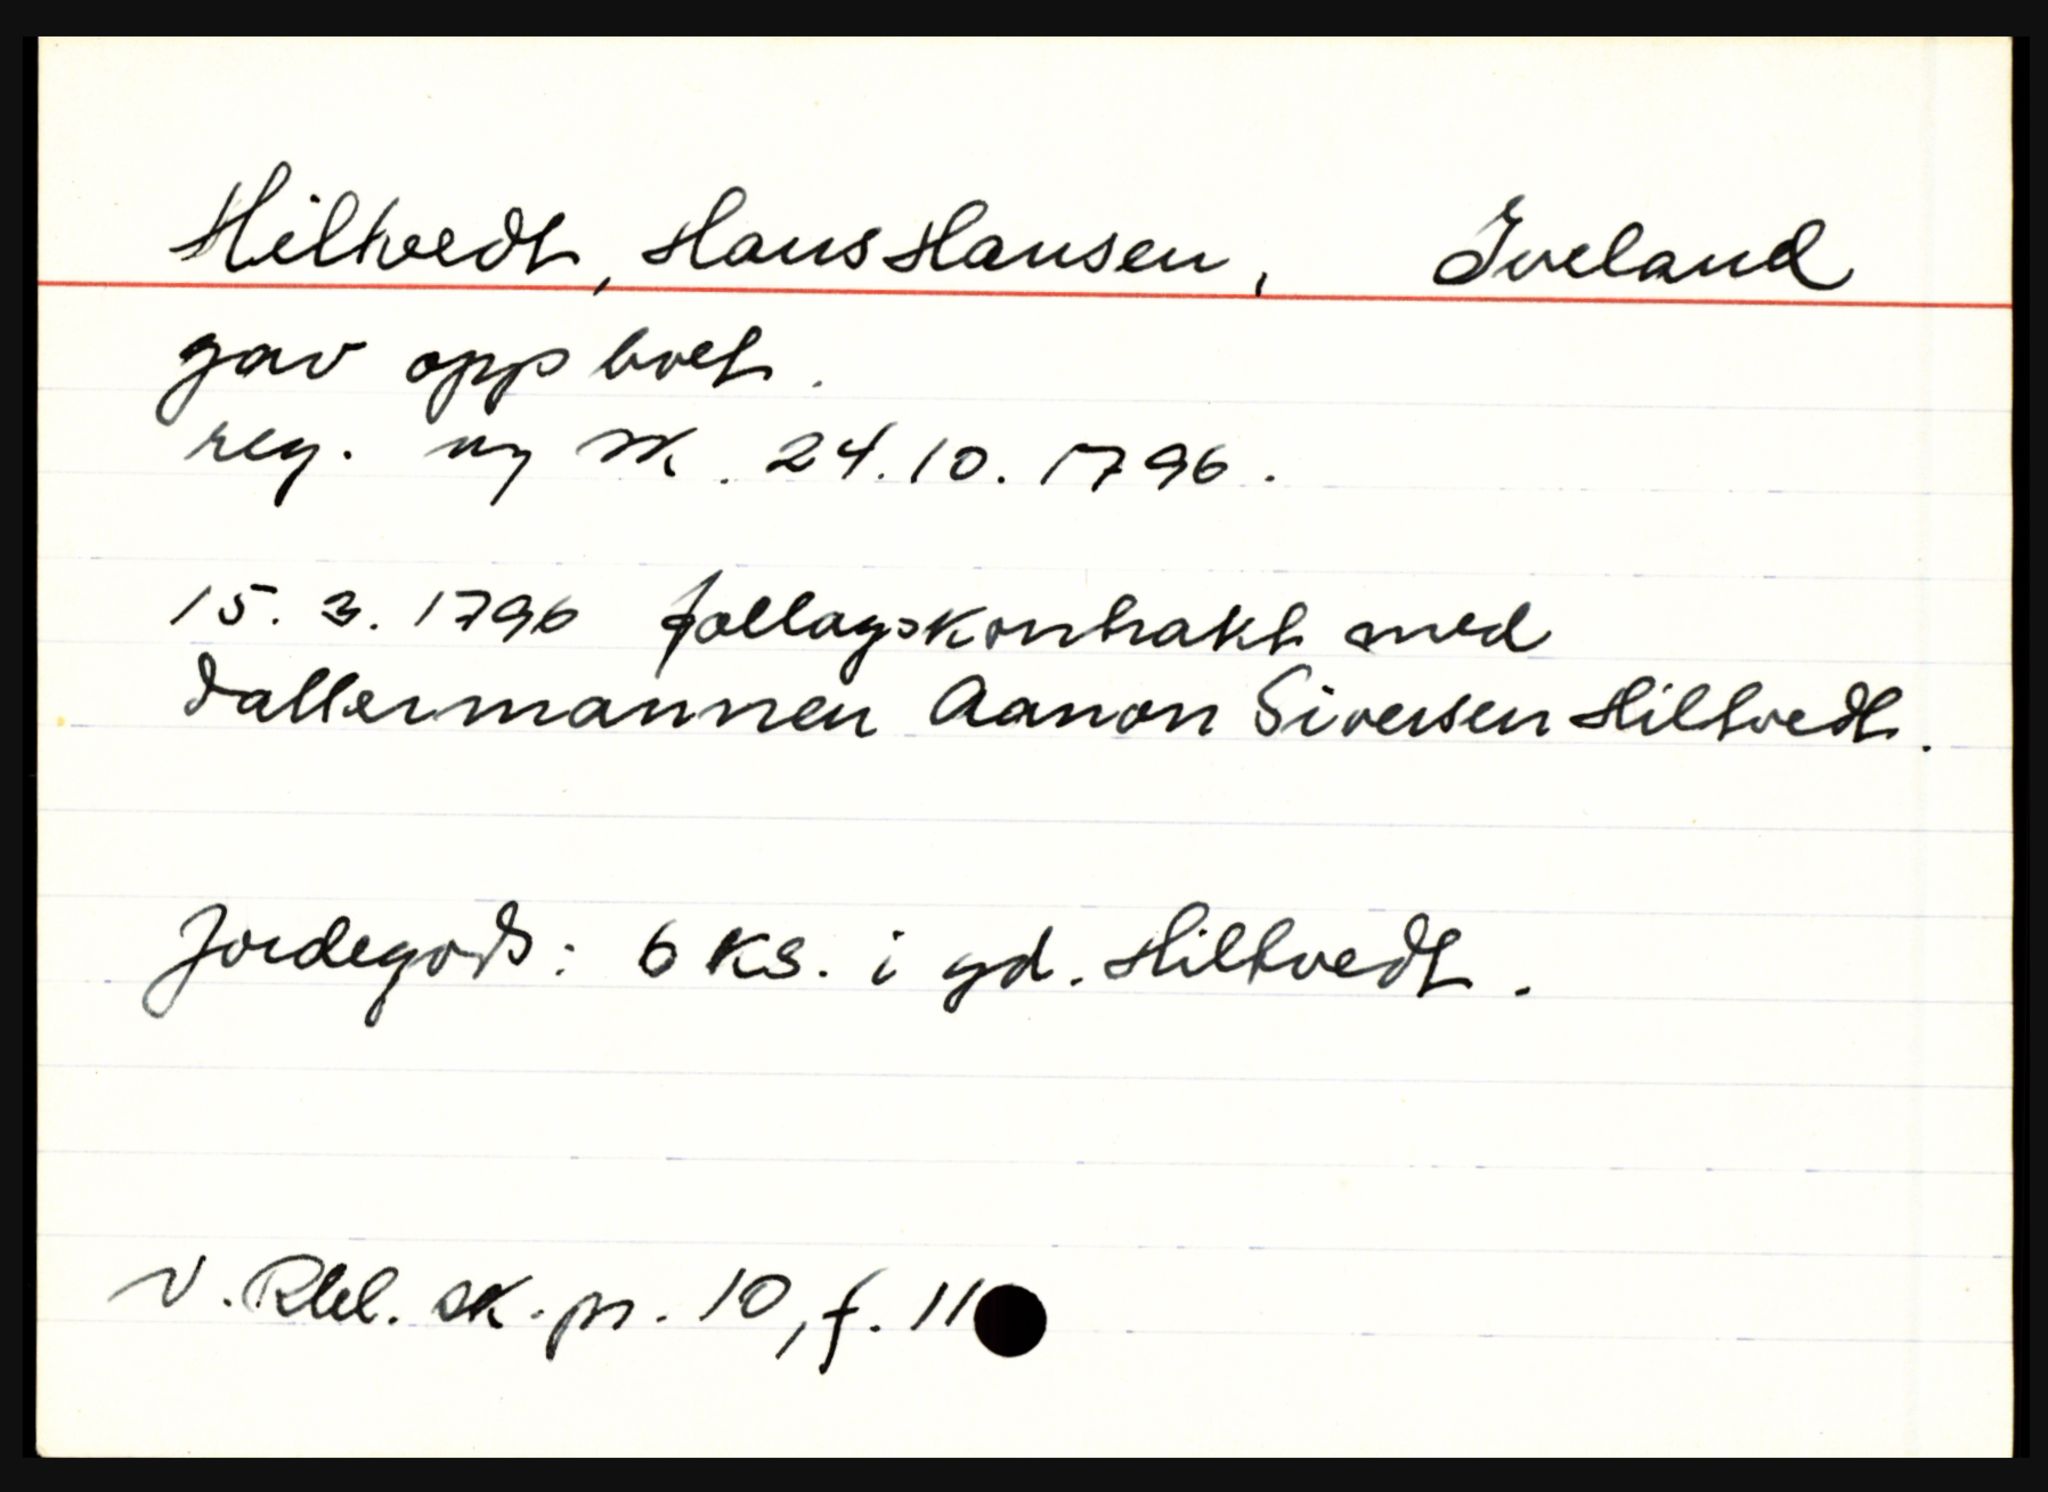 Hiltvedt, Hans Hansen, Iveland
gav opp boet.
reg. og sk. 24.10.1796.
15.3.1796 følagskontrakt med
dattermannen Aanon Siversen Hiltvedt.
Jordegods: 6 ks. i gd. Hiltvedt.
N. Rbl. sk. pr. 10, f. 11